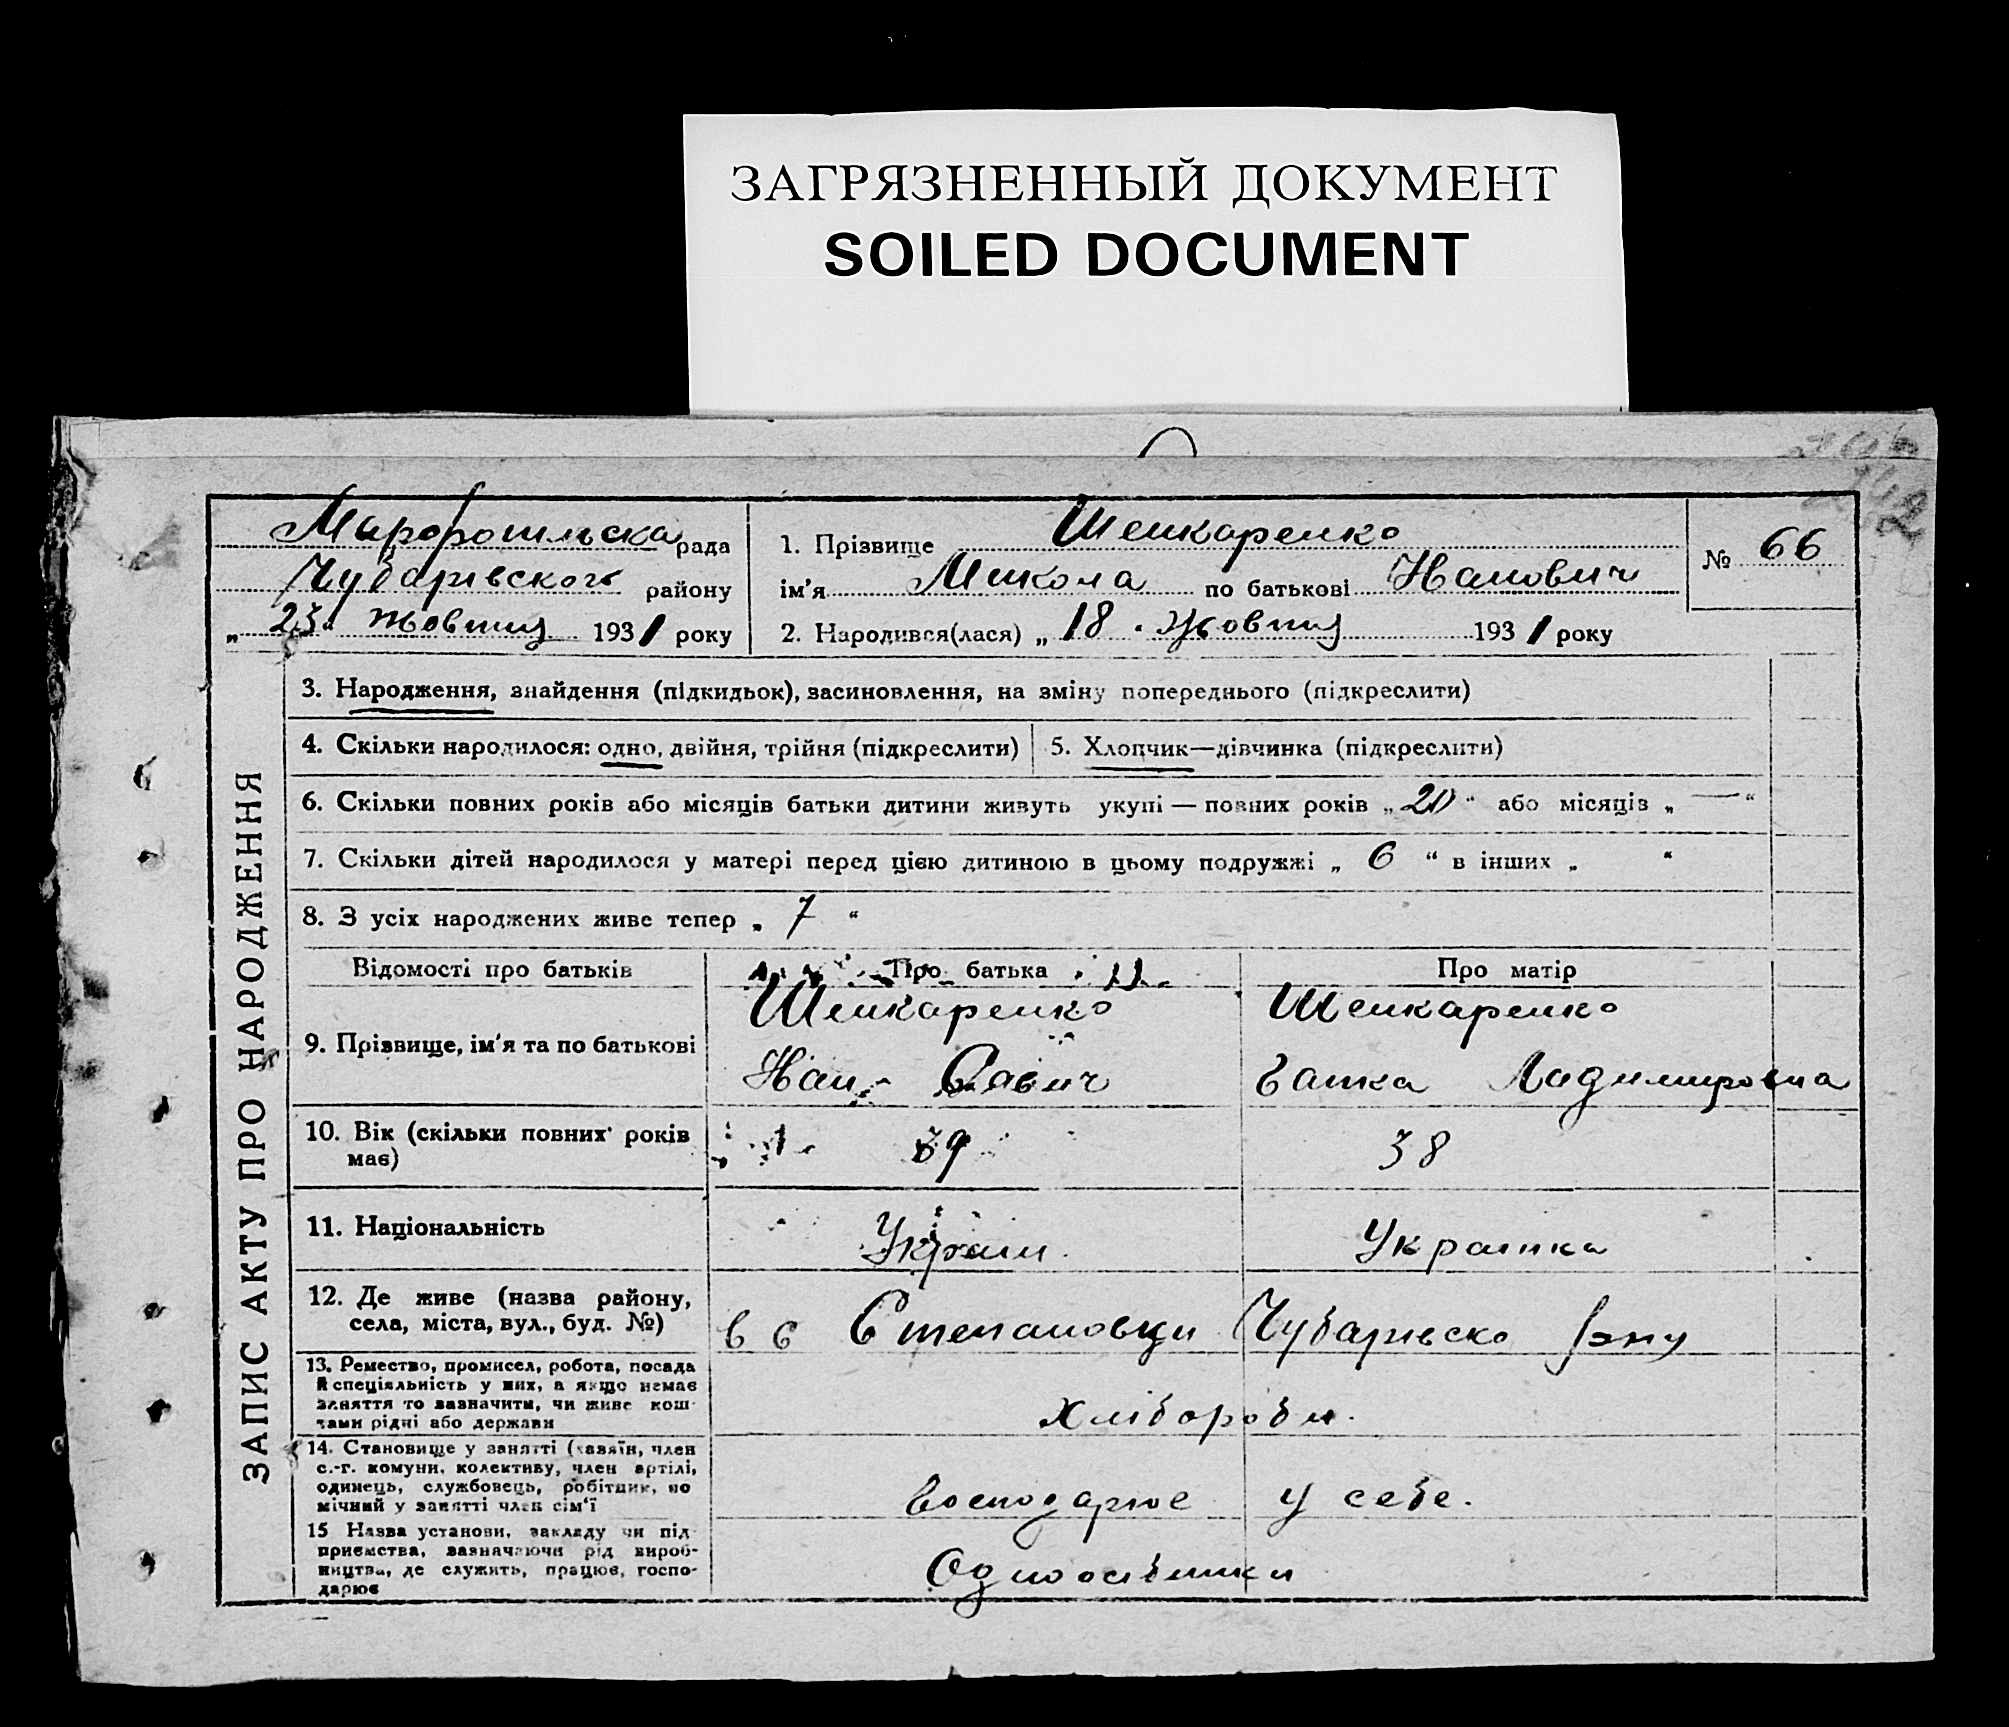 ЗАГРЯЗНЕННЫЙ ДОКУМЕНТ
SOILED DOCUMENT
рада
Чубарівского району
„ 23 “ жовтня 1931 року
1. Прізвище Шешкаренко
ім'я Микола по батькові
2. Народився(лася) „ 18 “ жовтня 1931 року
№ 66
ЗАПИС АКТУ ПРО НАРОДЖЕННЯ
3. Народження, знайдення (підкидьок), засиновлення, на зміну попереднього (підкреслити)
4. Скільки народилося: одно, двійня, трійня (підкреслити)
5. Хлопчик—дівчинка (підкреслити)
6. Скільки повних років або місяців батьки дитини живуть укупі — повних років „ 20 “ або місяців „ — “
7. Скільки дітей народилося у матері перед цією дитиною в цьому подружжі „ 6 “ в інших „ “
8. З усіх народжених живе тепер „ 7 “
Відомості про батьків Про батька Про матір
9. Прізвище, ім'я та по батькові
Шешкаренко Шешкаренко
Савич Ладимировна
10. Вік (скільки повних років
має)
39 38
11. Національність
Україн. Украинка
12. Де живе (назва району,
села, міста, вул., буд. №)
в с Степановци Чубарівско Рэну
13. Ремество, промисел, робота, посада
й спеціяльність у них, а якщо немає
заняття то зазначити, чи живе кош-
тами рідні або держави
Хлібороби.
14. Становище у занятті (хазяїн, член
с.-г. комуни, колективу, член артілі,
одинець, службовець, робітник, по
мічний у занятті член сім'ї
Господарює у себе.
15 Назва установи, закладу чи під-
приємства, зазначаючи рід вироб-
ництва, де служить, працює, госпо-
дарює
Одноосібники